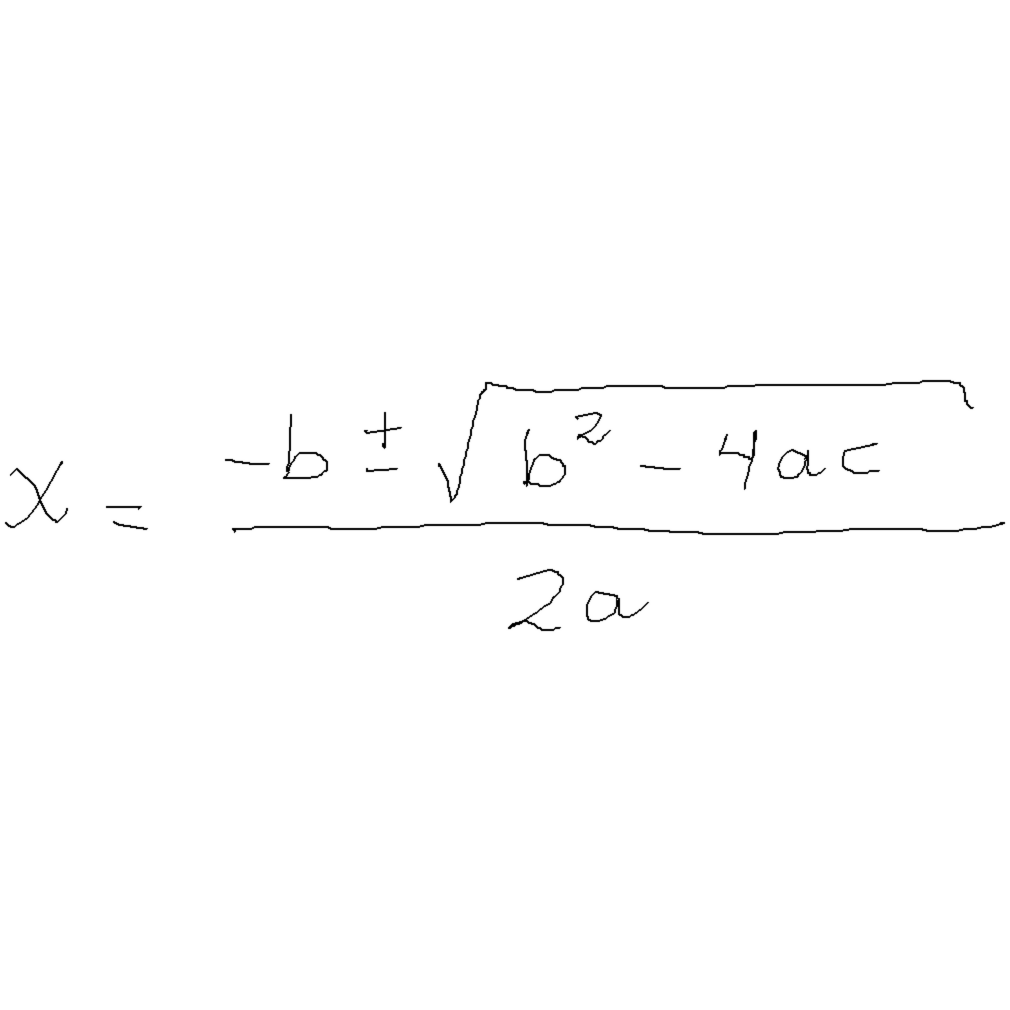 x = -b ± √(b² - 4ac) / 2a